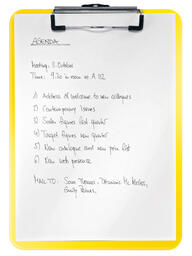 AGENDA
Meeting: 11 October
Time: 9.30 in room no A 112
1) Address of welcome to new colleagues
2) Contemporary Issues
3) Sales figures last quarter
4) Target figures new quarter
5) New catalogue and new price list
6) New web presence
MAIL TO: Sam Thomas,
Emily Palmer,